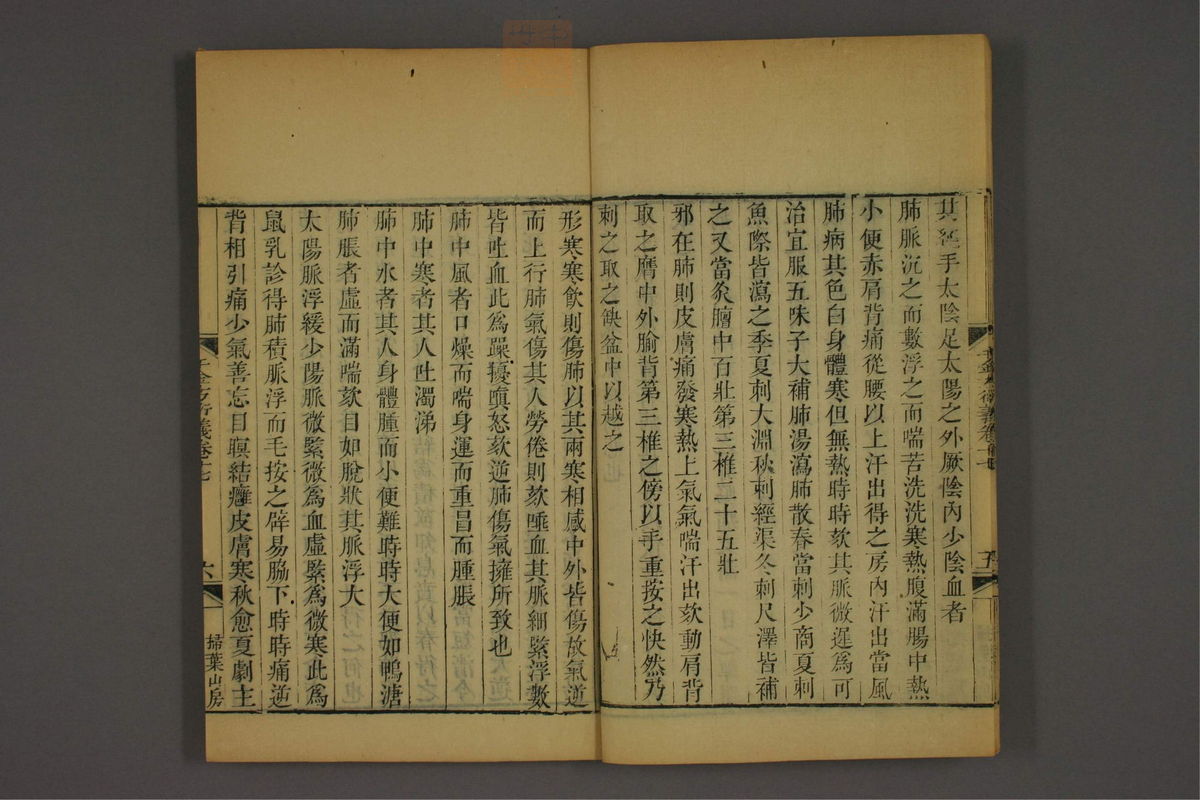 其經手太陰足太陽之外厥陰內少陰血者
肺脈沉之而數浮之而喘苦洗洗寒熱腹滿腸中熱
小便赤肩背痛從腰以上汗出得之房內汗出當風
肺病其色白身體寒但無熱時時欬其脈微遲爲可
治宜服五味子大補肺湯瀉肺散春當刺少商夏刺
魚際皆瀉之季夏刺大淵秋刺經渠冬刺尺澤皆補
之又當灸膻中百壯第三椎二十五壯
邪在肺則皮膚痛發寒熱上氣氣喘汗出欬動肩背
取之膺中外腧背第三椎之傍以手重按之快然乃
刺之取之缺盆中以越之
五
形寒寒飲則傷肺以其兩寒相感中外皆傷故氣逆
而上行肺氣傷其人勞倦則欬唾血其脈細緊浮數
皆吐血此爲躁擾嗔怒欬逆肺傷氣擁所致也
肺中風者口燥而喘身運而重冒而腫脹
肺中寒者其人吐濁涕
肺中水者其人身體腫而小便難時時大便如鴨溏
肺脹者虛而滿喘欬目如脫狀其脈浮大
太陽脈浮緩少陽脈微緊微爲血虛緊爲微寒此爲
鼠乳診得肺積脈浮而毛按之辟易脇下時時痛逆
背相引痛少氣善忘目瞑結癰皮膚寒秋愈夏劇主
千金方衍義卷十七
六
掃葉山房